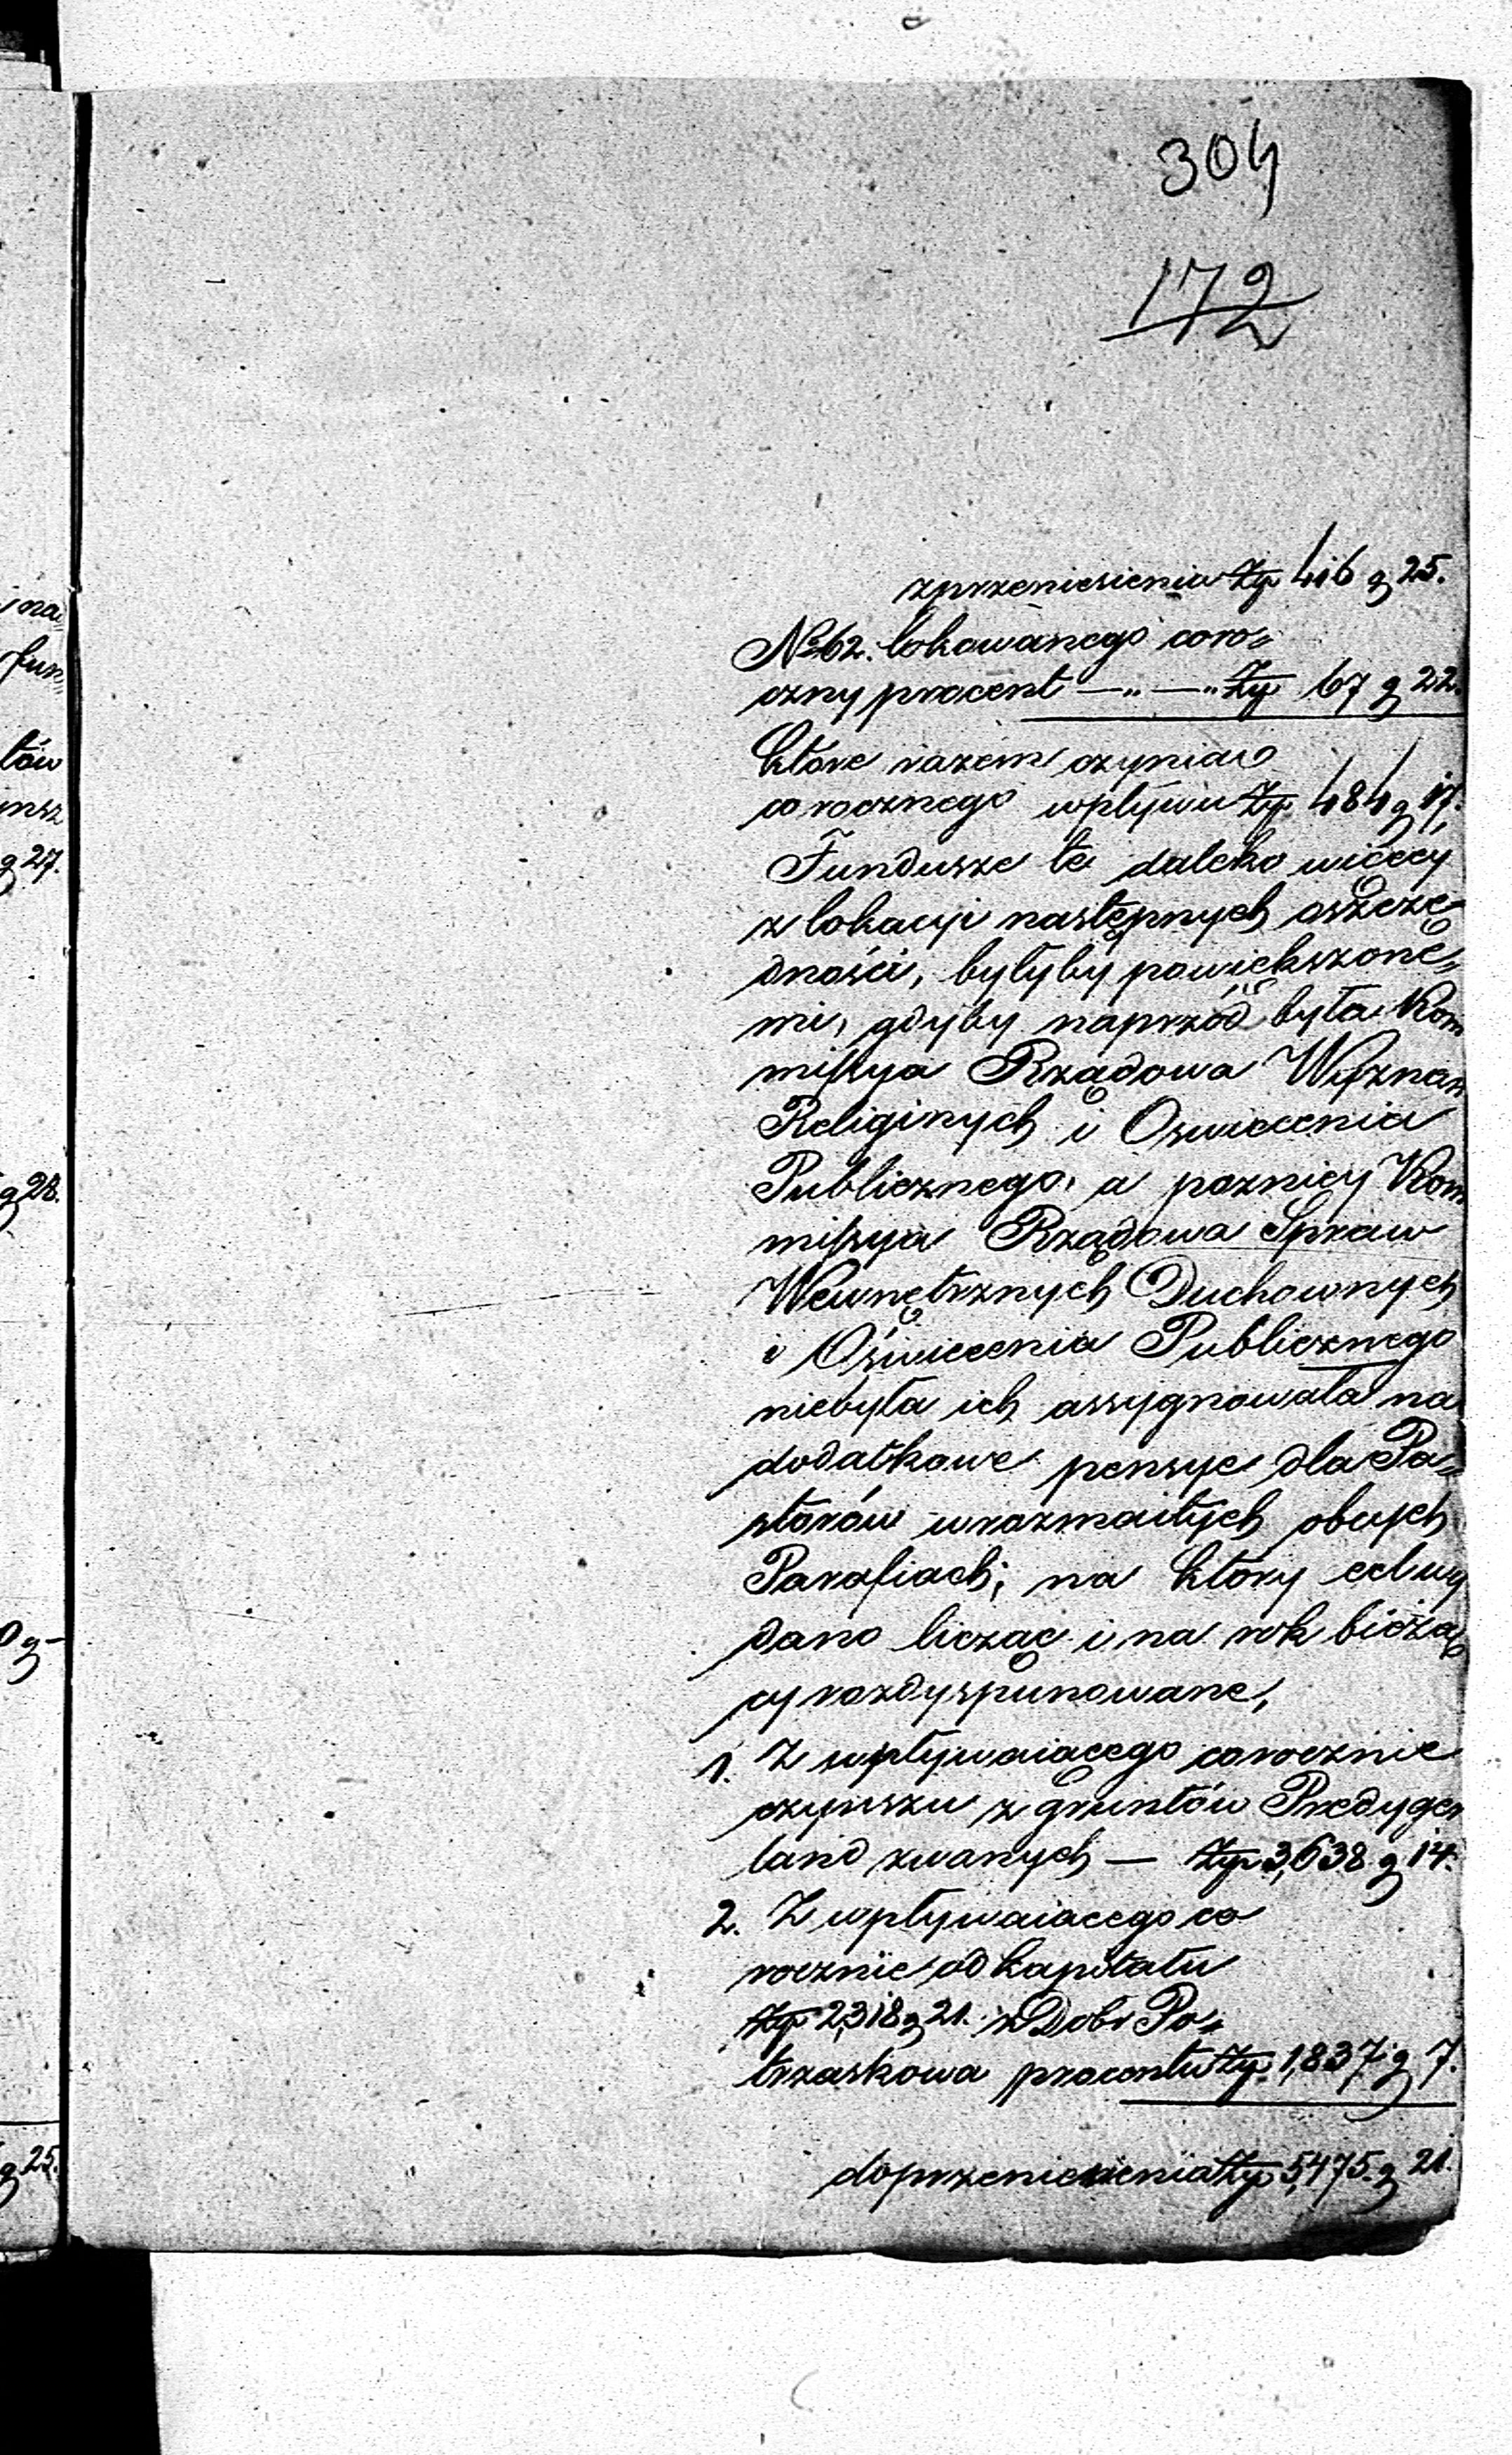 304
172
z przeniesienia Zp 416 g 25.
No 62. lokowanego coro„
czny procent —„—„ Zp 67 g 22.
które razem czynia
corocznego wpływu Zp 484 g 17.
Fundusze te daleko więcey
z lokacyi następnych oszczę„
dności, byłyby powiększone„
mi, gdyby naprzód była Kom
missya Rządowa Wyznan
Religinych i Oswiecenia
Publicznego, a poznicy Kom
missya Rządowa Spraw
Wewnętrznych Duchownych
i Oświecenia Publicznego
niebyła ich assygnowała na
dodatkowe pensye dla Pa„
storów w rozmaitych obcych
Parafiach; na ktory cel wy
dano licząc i na rok bieżą
cy rozdysponowane,
1. Z wpływaiącego corocznie
czynszu z gruntów Predyger
land zwanych — Zp 3,638 g 14.
2. Z wpływaiacego co
rocznie od kapitału
Zp 2,318 g 21. z Dobr Po„
trzaskowa procentu Zp. 1,837 g 7.
do przeniesienia Zp 5,475 g 21.
na
fun„
tów
nsz
g 27.
g 28.
0 g –
g 25.